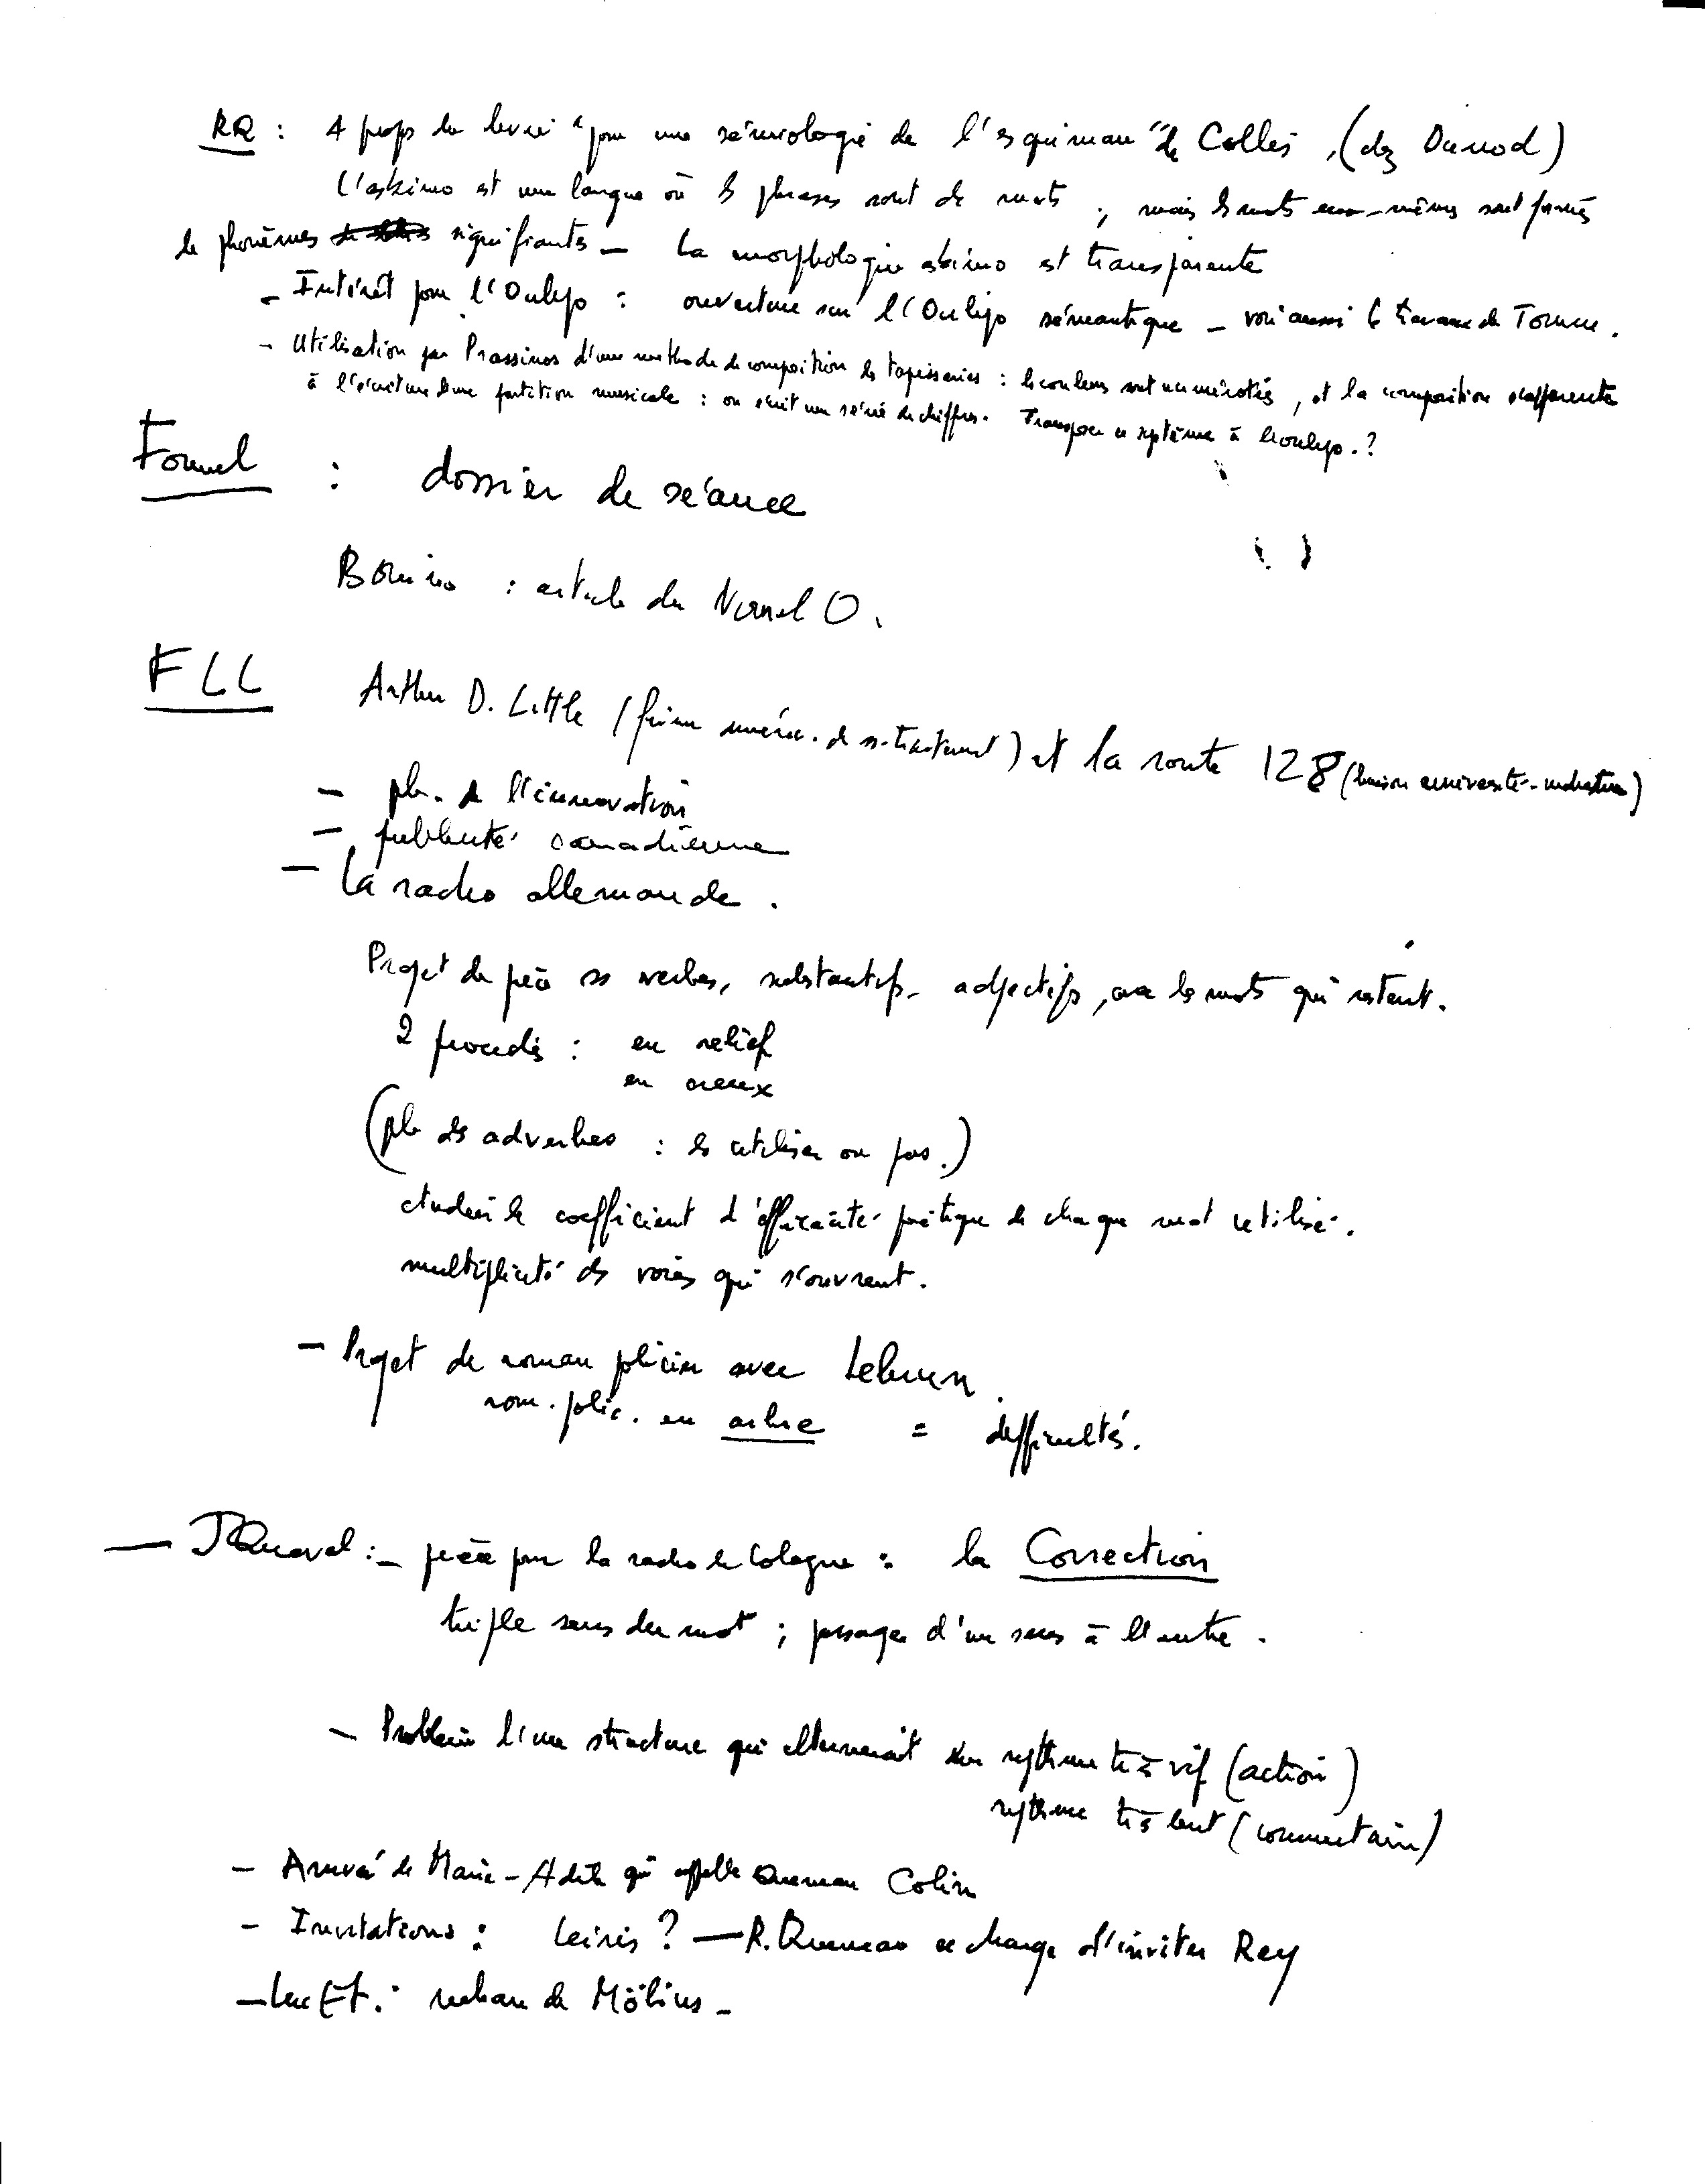 RQ : A propos du livre "pour une sémiologie de l'esquimau" de Collis, (chez Dunod)
L'eskimo est une langue où les phrases sont des mots ; mais les mots eux-mêmes sont formés
de phonèmes signifiants — La morphologie eskimo est transparente
- Intérêt pour l'Oulipo : ouverture sur l'Oulipo sémantique - voir aussi les travaux de
- Utilisation par Prassinos d'une méthode de composition des tapisseries : les couleurs sont numérotées, et la composition s'apparente
à l'écriture d'une partition musicale : on écrit une série de chiffres. Transposer ce système à l'oulipo. ?
Fournel : dossier de séance
: article du Nouvel O.
FLL Arthur D. Little (firme améric. de ) et la route 128 (liaison université-industrie)
- pb. de l'innovation
- publicité canadienne
- La radio allemande.
Projet de pièce ss verbes, substantifs, adjectifs, avec les mots qui restent.
2 procédés : en relief
en creux
(pb des adverbes : les utiliser ou pas.)
étudier le coefficient d'efficacité poétique de chaque mot utilisé.
multiplicité des voies qui s'ouvrent.
- Projet de roman policier avec
rom. polic. en arbre = difficultés.
— J Queval : - pièce pour la radio de Cologne : la Correction
triple sens du mot ; passage d'un sens à l'autre.
- Problème d'une structure qui alternerait un rythme très vif (action)
rythme très lent (commentaire)
- Arrivée de Marie-Adèle qui appelle Queneau Colin
- Invitations : Leiris ? — R. Queneau se charge d'inviter Rey
- Luc Et. : ruban de Möbius -